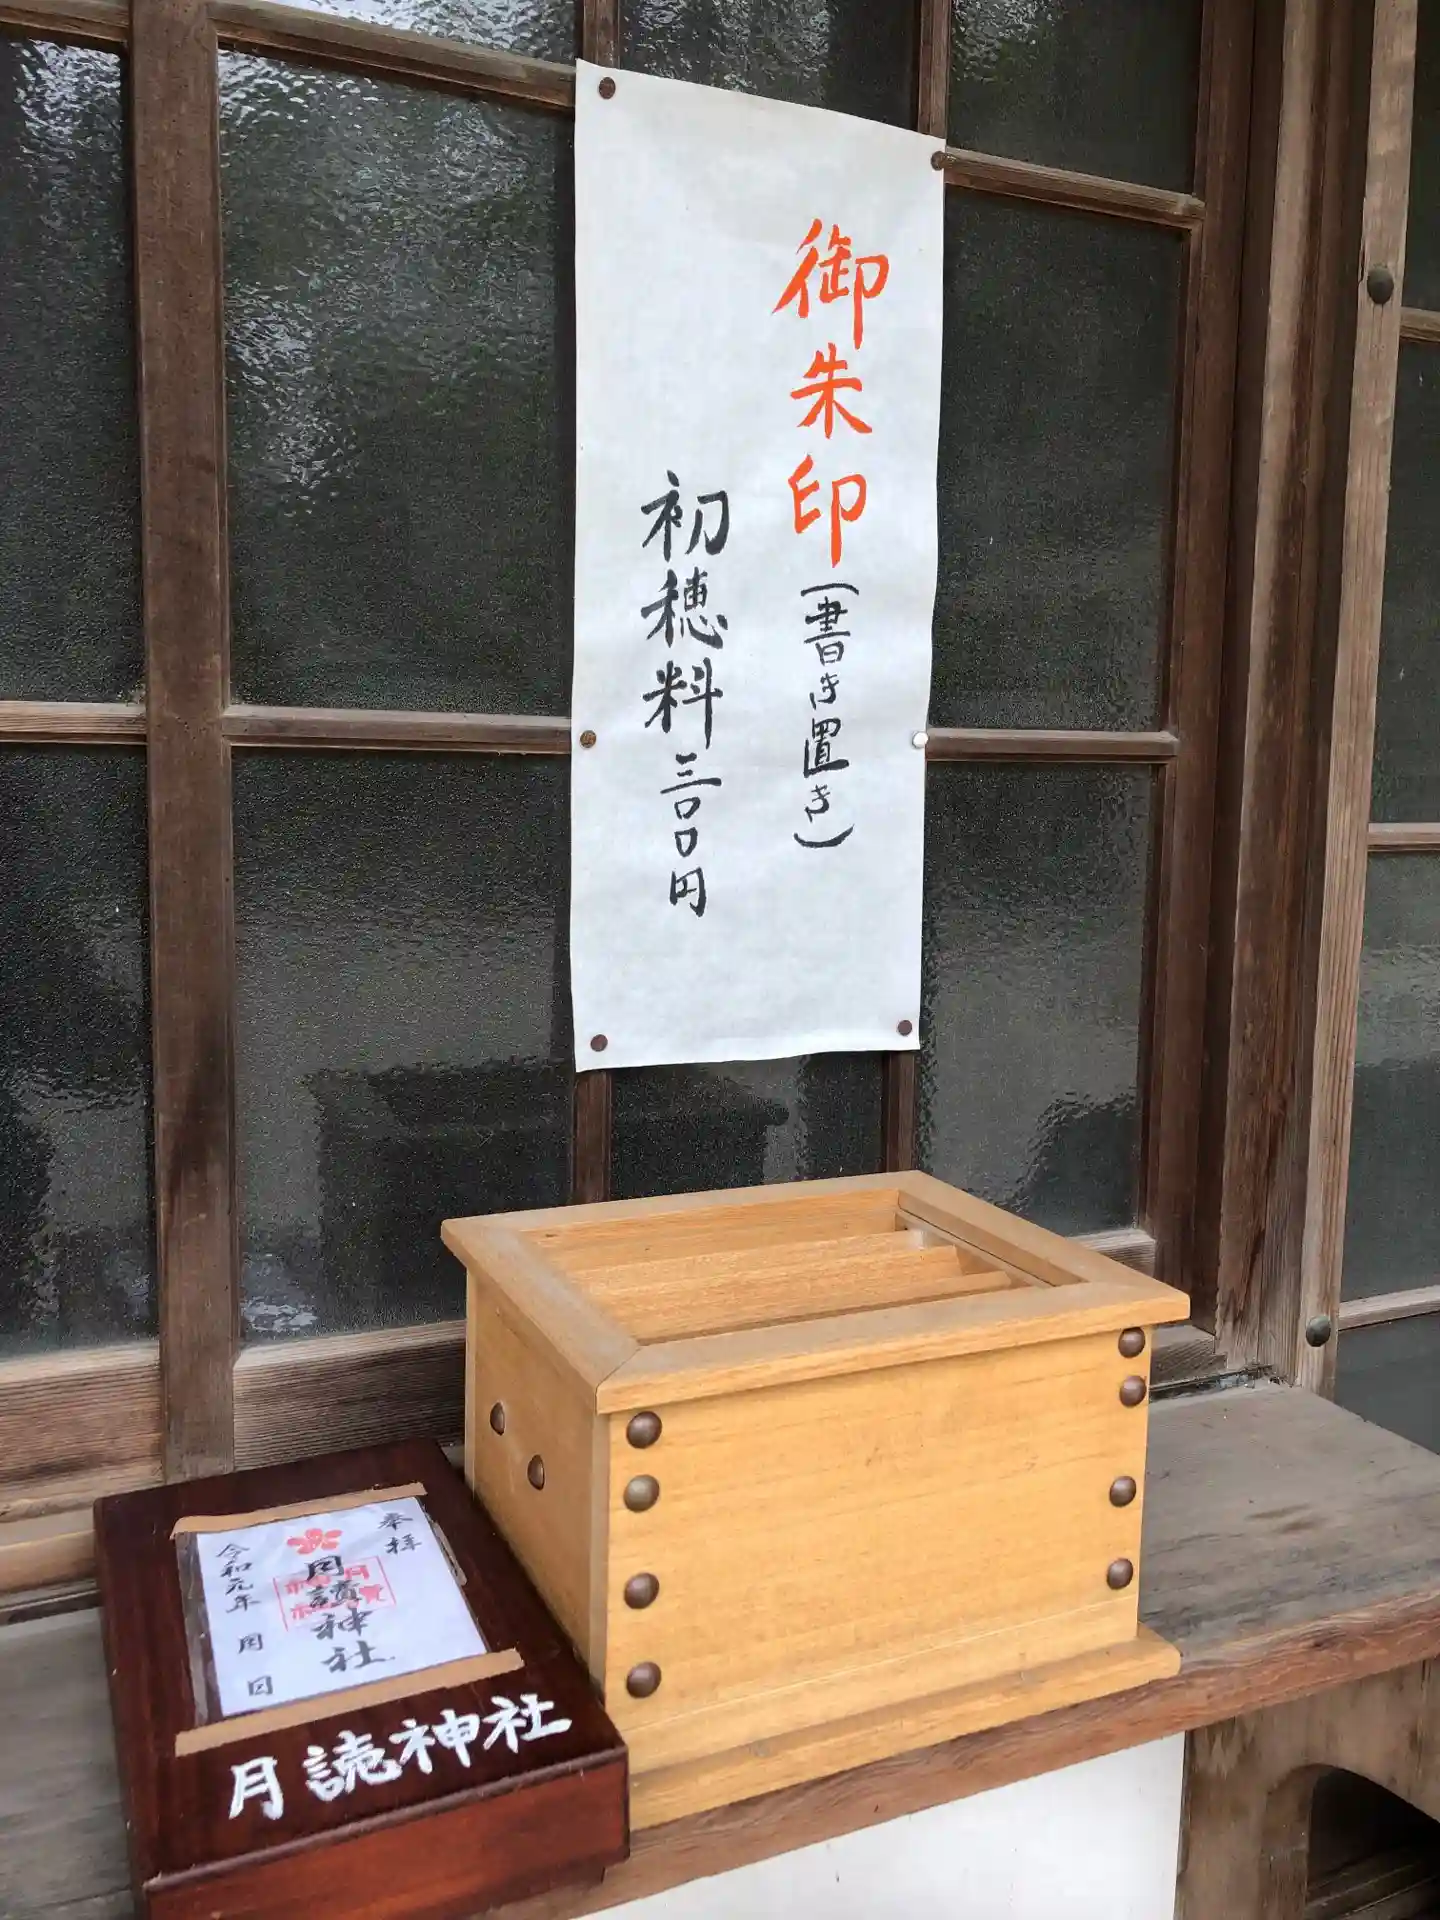 御朱印(書き置き)
初穂料三〇〇円
奉拝
月讀神社
令和元年 月 日
月読神社